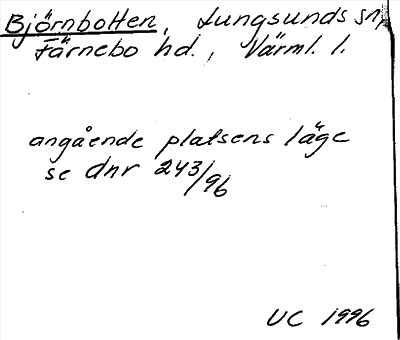 Björnbotten, Lungsunds sn,
Färnebo hd., Värml. l.
angående platsens läge
se dnr 243/96
UC 1996